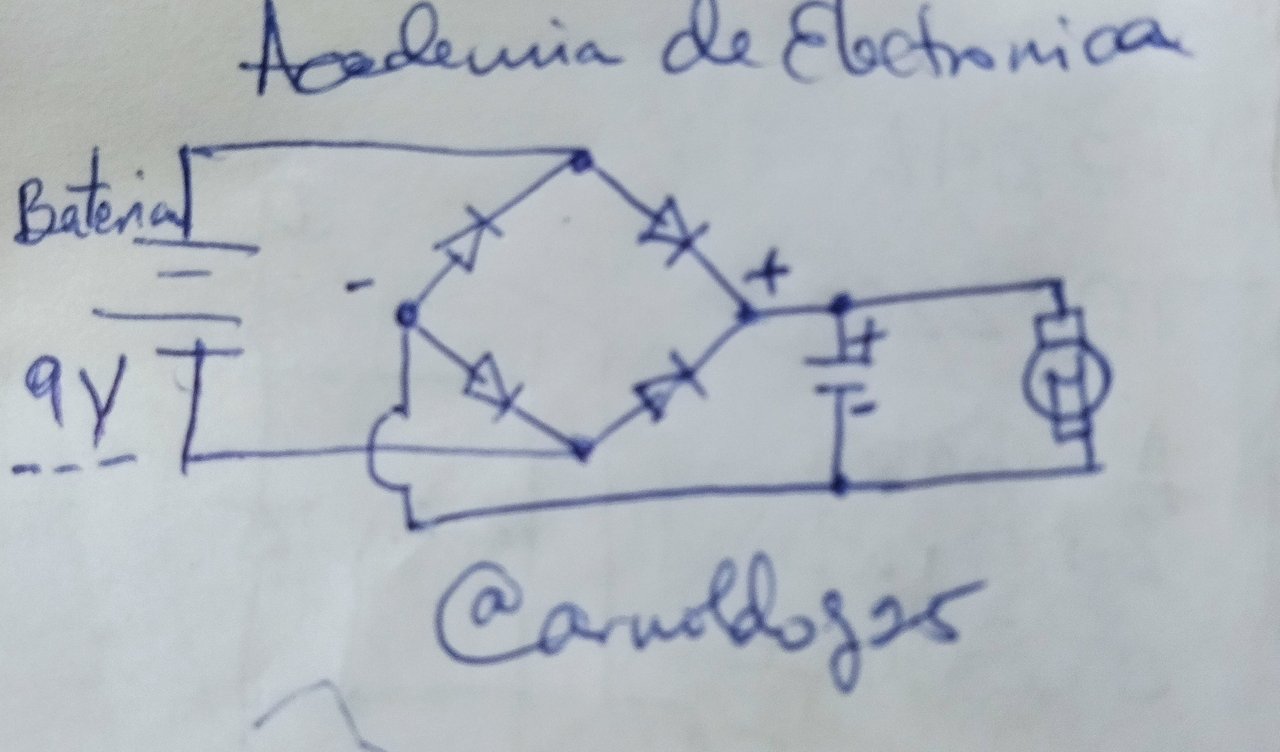 Academia de Electronica
Bateria
- +
+
9V
-
---
@arnoldog25